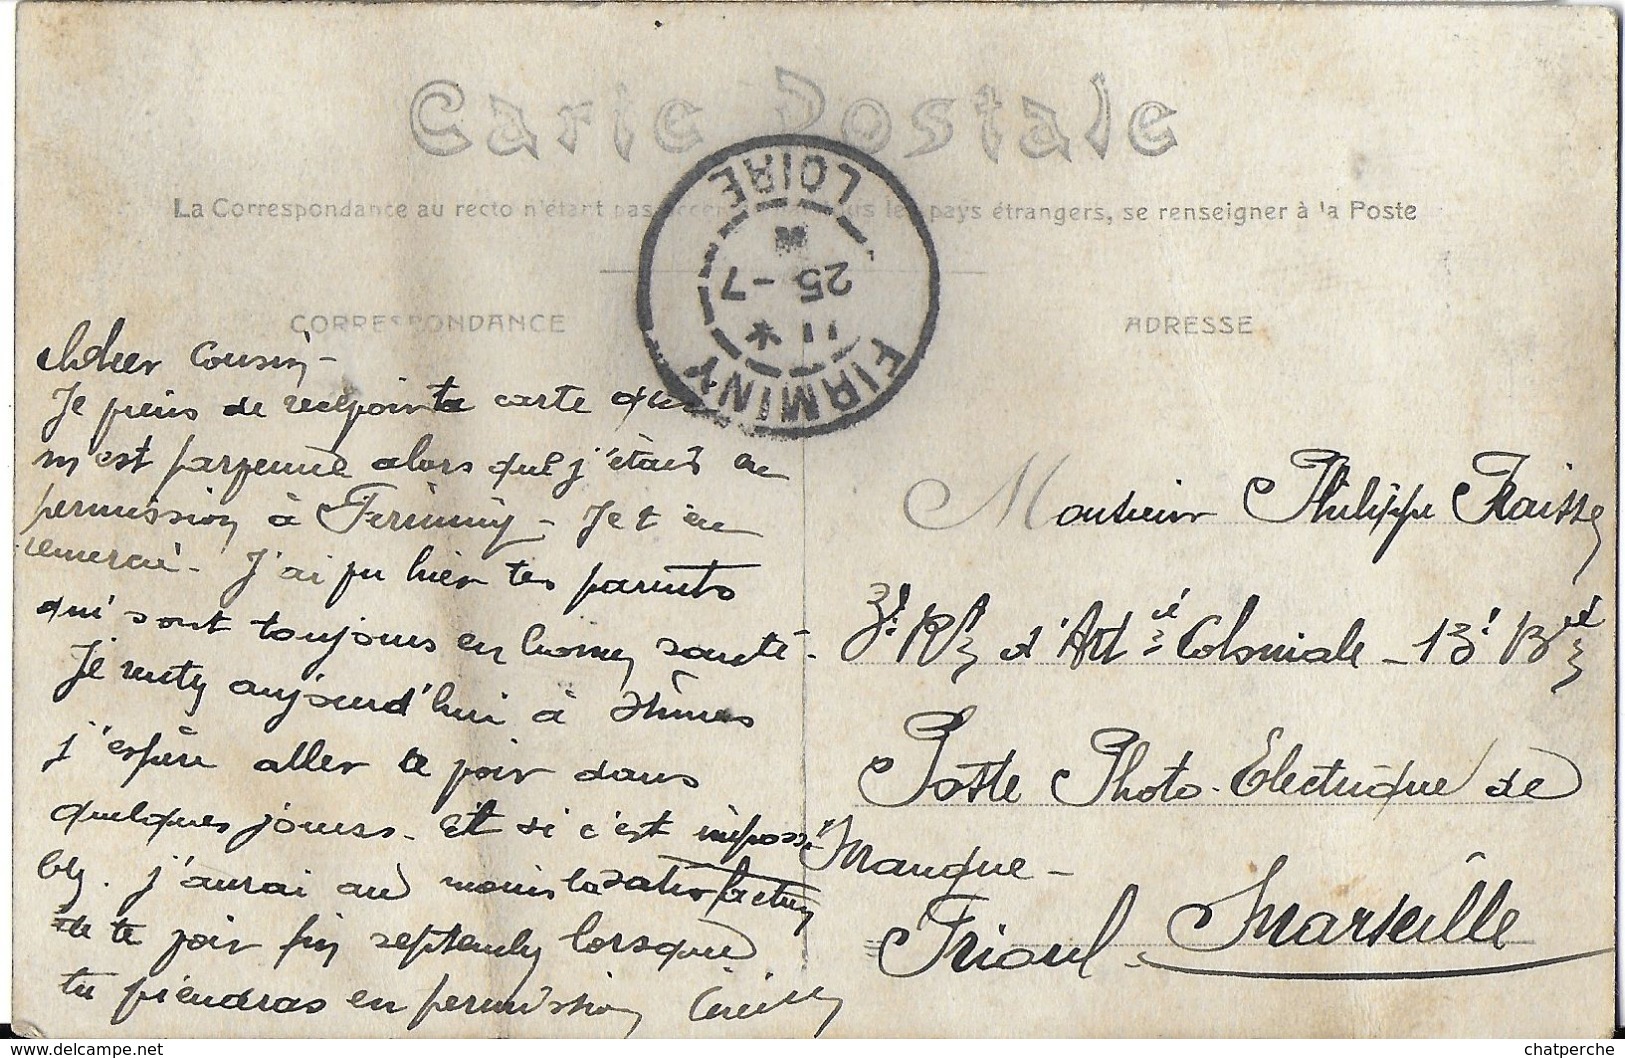 Carte Postale
La Correspondance au recto n'étant pas acceptée par tous les pays étrangers, se renseigner à la Poste
CORRESPONDANCE
ADRESSE
LOIRE
25 -7
11 *
FIRMINY
Cher Cousin -
Je viens de recevoir ta carte qui
m'est parvenue alors que j'étais en
permission à Firminy - Je t'en
remercie. J'ai vu hier tes parents
qui sont toujours en bonne santé.
Je rentre aujourd'hui à Nîmes
j'espère aller te voir dans
quelques jours. Et si c'est impossi
ble. j'aurai au moins la satisfaction
de te voir fin septembre lorsque
tu viendras en permission
Monsieur Philippe Fraisse
3e Rgt d'Artie Coloniale - 13e Bie
Poste Photo-Electrique de
Manque -
Frioul - Marseille
chatperche - delcampe.net